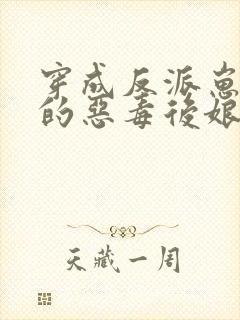 穿成反派崽
的惡毒後娘
天藏一周